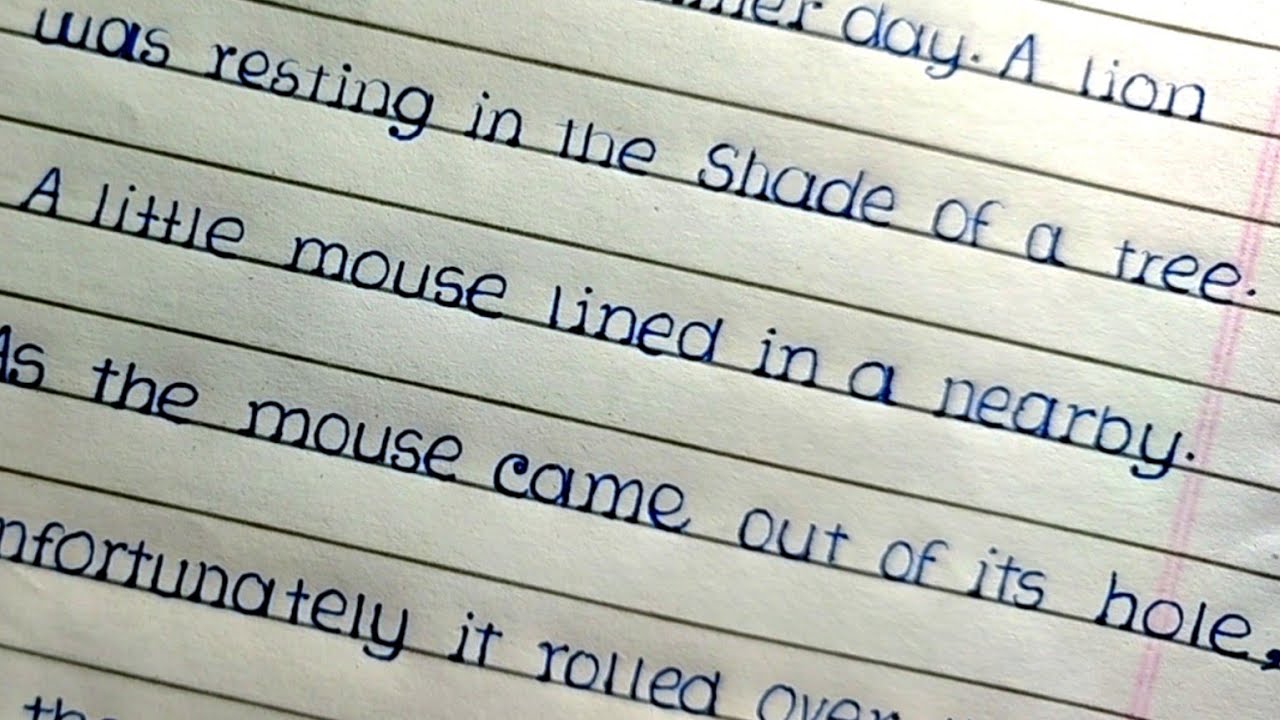 day. A lion
was resting in the Shade of a tree.
A little mouse lined in a nearby.
As the mouse came out of its hole,
nfortunately it rolled over